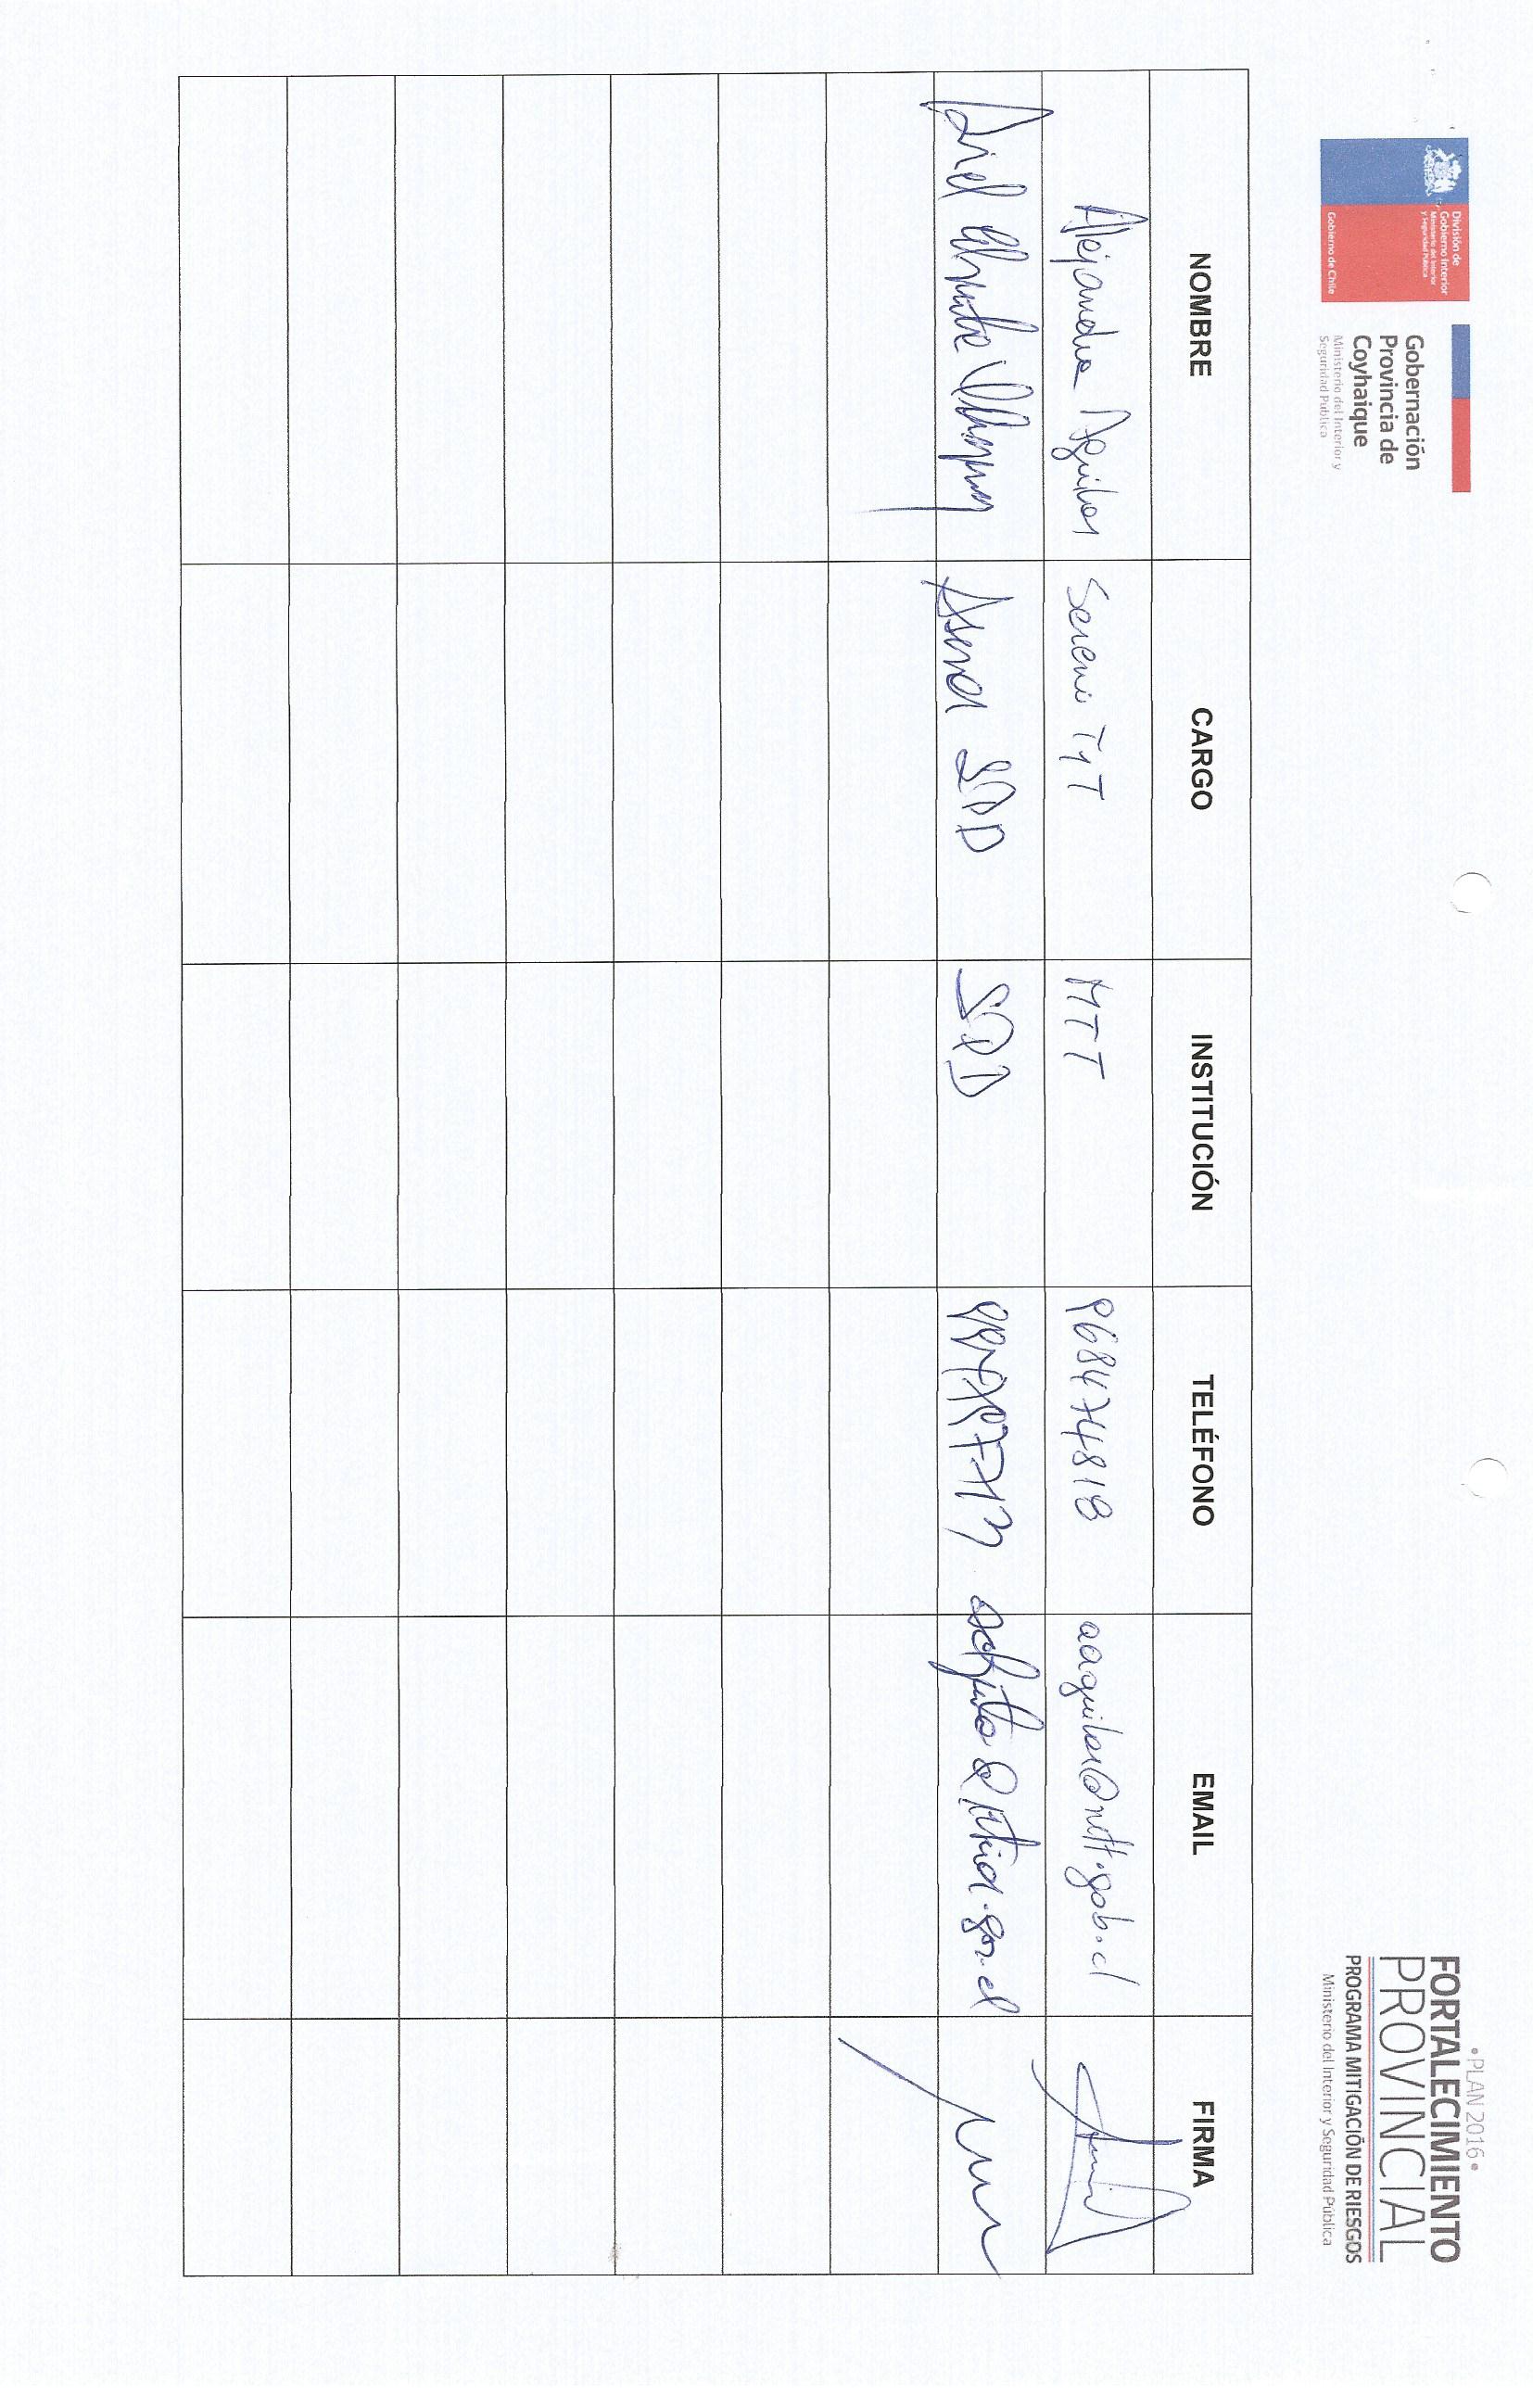 División de
Gobierno Interior
Ministerio del Interior
y Seguridad Pública
Gobierno de Chile
Gobernación
Provincia de
Coyhaique
Ministerio del Interior y
Seguridad Pública
• PLAN 2016 •
FORTALECIMIENTO
PROVINCIAL
PROGRAMA MITIGACIÓN DE RIESGOS
Ministerio del Interior y Seguridad Pública
NOMBRE CARGO INSTITUCIÓN TELÉFONO EMAIL FIRMA
Alejandra Aguilar Seremi TyT MTT 968474818 aaguilar@mtt.gob.cl
Ariel SPD SPD